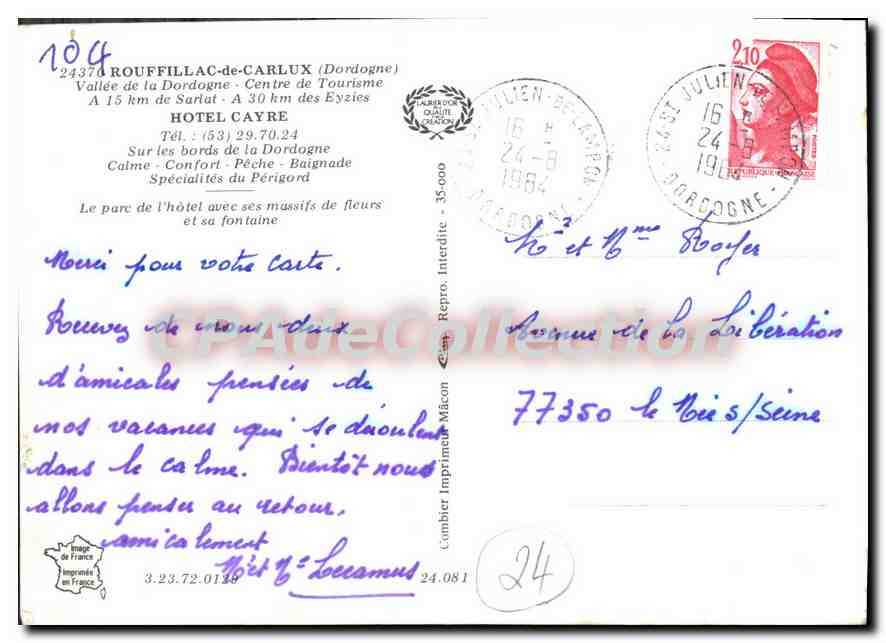 104
24370 ROUFFILLAC-de-CARLUX (Dordogne)
Vallée de la Dordogne - Centre de Tourisme
A 15 km de Sarlat - A 30 km des Eyzies
HOTEL CAYRE
Tél. : (53) 29.70.24
Sur les bords de la Dordogne
Calme - Confort - Pêche - Baignade
Spécialités du Périgord
Le parc de l'hôtel avec ses massifs de fleurs
et sa fontaine
LAURIER D'OR
DE LA
QUALITÉ
CRÉATION
Merci pour votre carte.
Recevez de nous deux
d'amicales pensées de
nos vacances qui se déroulent
dans le calme. Bientôt nous
allons penser au retour.
amicalement
Mr et Me Lecamus
Image
de France
Imprimée
en France
3.23.72.0129
24.081
Combier Imprimeur Mâcon
Repro. Interdite - 35-000
24 ST JULIEN-DE-LAMPON
16 H
24-8
1984
DORDOGNE
24 ST JULIEN-DE-LAMPON
16 H
24-8
1984
DORDOGNE
2,10
POSTES
REPUBLIQUE FRANÇAISE
Mr et Mme Royer
Avenue de la Libération
77350 le Mée s/Seine
24
CPAdeCollection